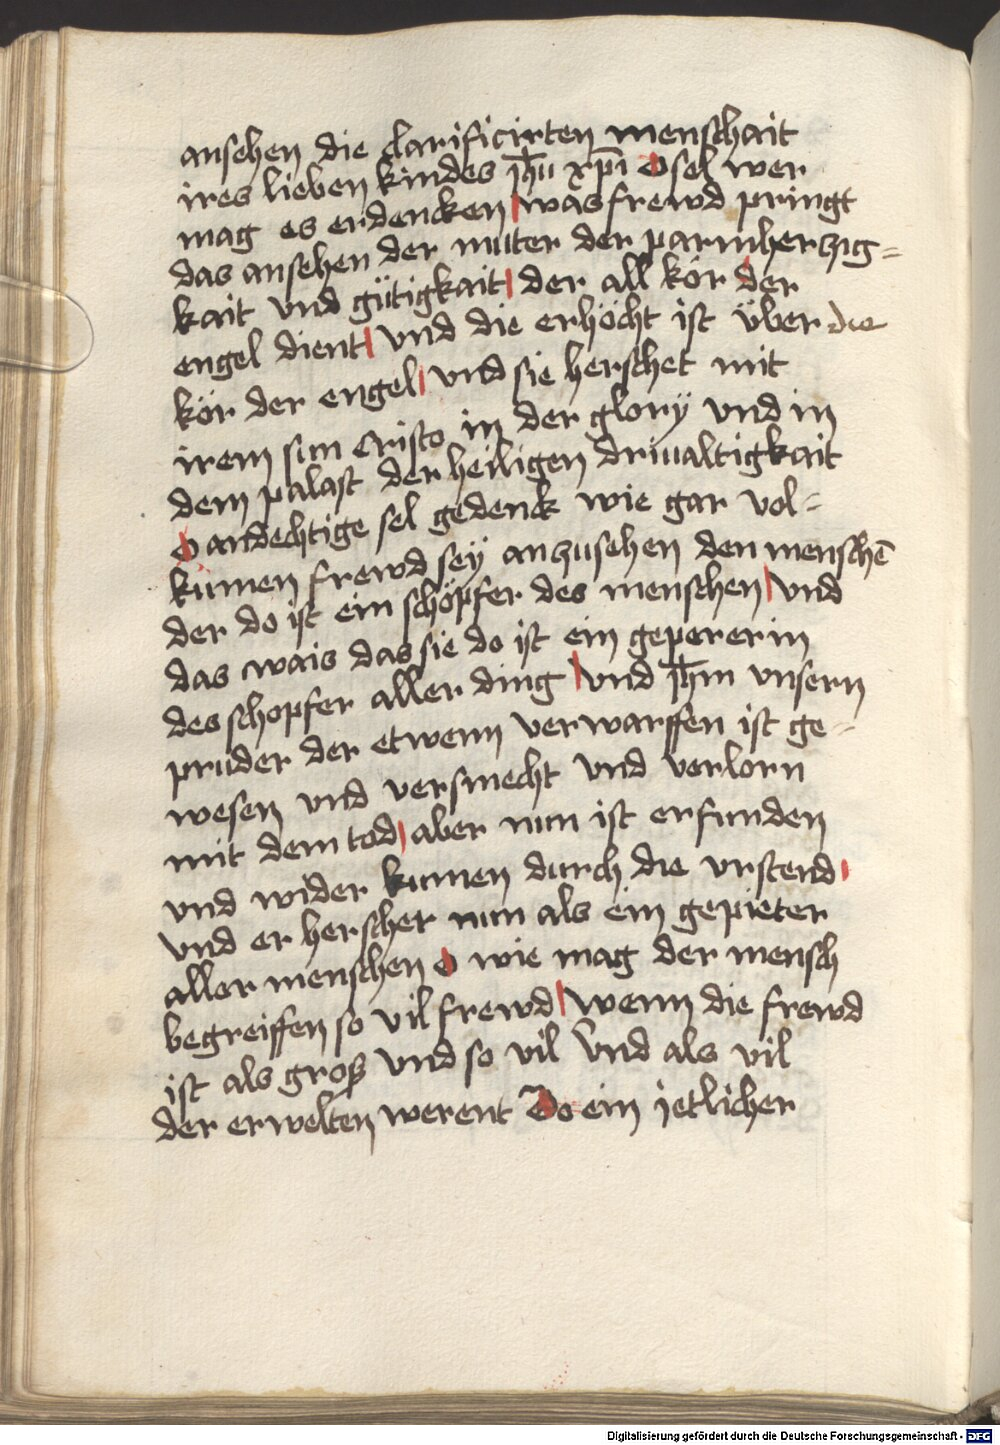 ansehen die clarificirten menschait
ires lieben kindes jh̄u xp̄i O sel wer
mag es erdencken | was frewd pringt
das ansehen der muter der parmherczig=
kait vnd gütigkait | der all kör der
engel dient | vnd die erhöcht ist über die
kör der engel | vnd sie herschet mit
irem sun cristo in der glorÿ vnd in
dem palast der heiligen driualtigkait
O andechtige sel gedenck wie gar vol=
kumen frewd seÿ anzusehen den menschē
der do ist ein schöpfer des menschen | vnd
das wais das sie do ist ein gepererin
des schopfer aller ding | vnd jh̄m vnsern
prüder der etwenn verwarffen ist ge=
wesen vnd versmecht vnd verlorn
mit dem tod | aber nun ist erfunden
vnd wider kumen durch die vrstend |
vnd er herschet nun als ein gepieter
aller menschen O wie mag der mensch
begreiffen so vil frewd | wenn die frewd
ist als groß vnd so vil vnd als vil
der erwelten werent Do ein jetlicher
Digitalisierung gefördert durch die Deutsche Forschungsgemeinschaft - DFG